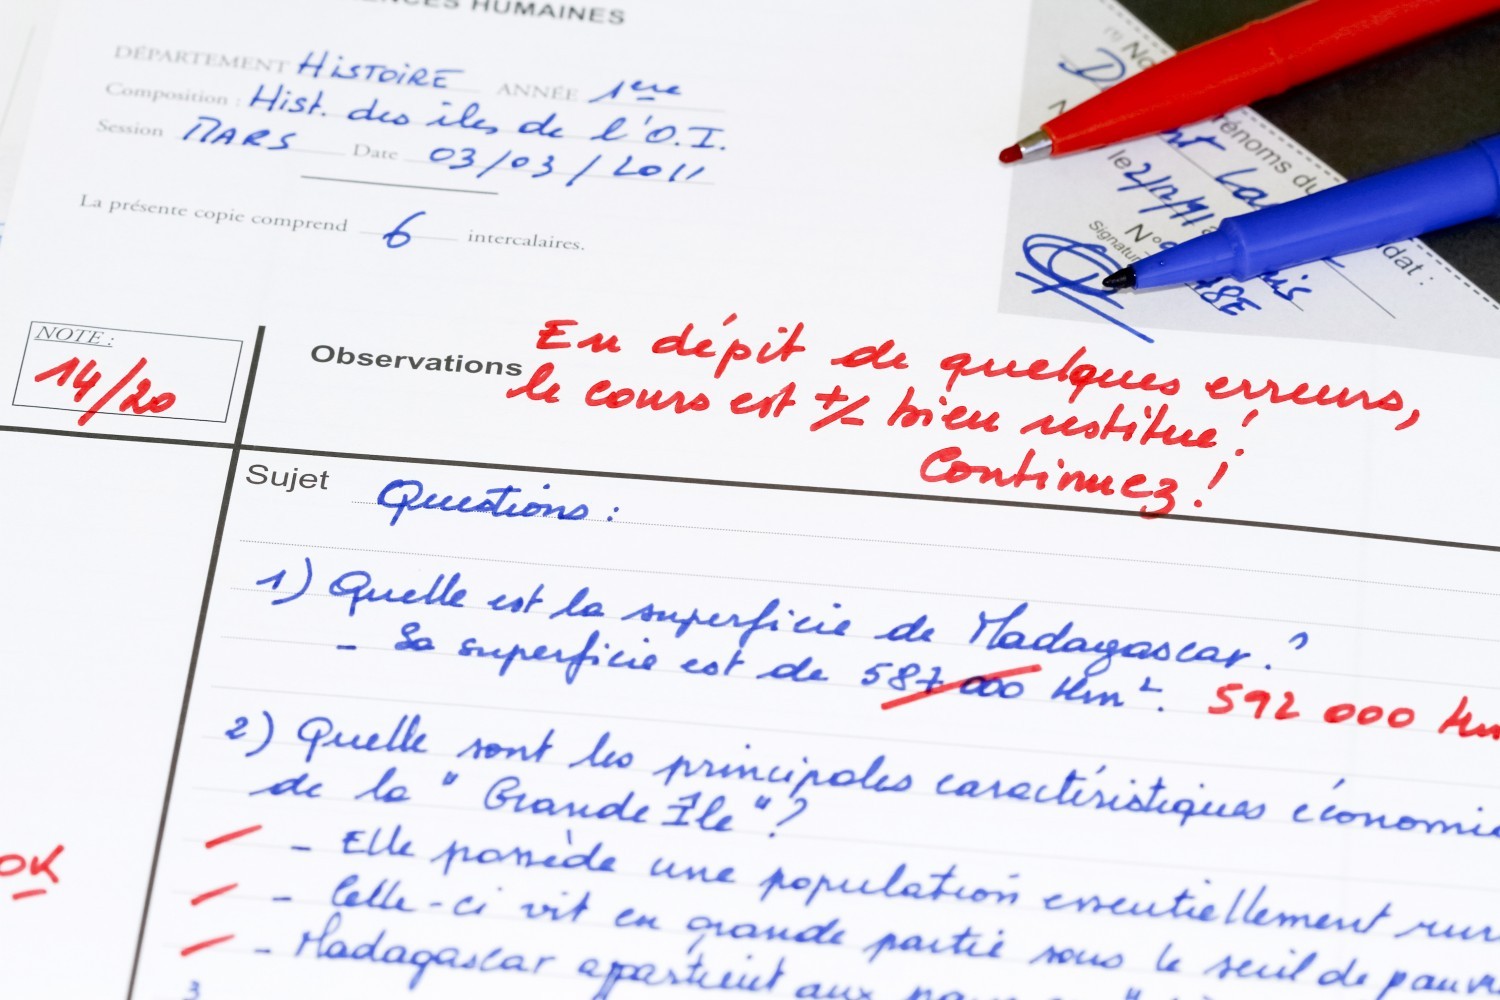 ENCES HUMAINES
DÉPARTEMENT HISTOIRE ANNÉE 1ere
Composition : Hist. des îles de l'O.I.
Session MARS Date 03/03/2011
La présente copie comprend 6 intercalaires.
le 2/12/91
N°
NOTE :
14/20
Observations En dépit de quelques erreurs,
le cours est +/- bien restitué!
Continuez!
Sujet Questions :
1) Quelle est la superficie de Madagascar.?
- Sa superficie est de 587 000 Km². 592 000 Km
2) Quelle sont les principales caractéristiques économi
de la "Grande Île"?
- Elle possède une population essentiellement rur
OK
- Celle-ci vit en grande partie sous le seuil de pauvr
- Madagascar appartient aux
3